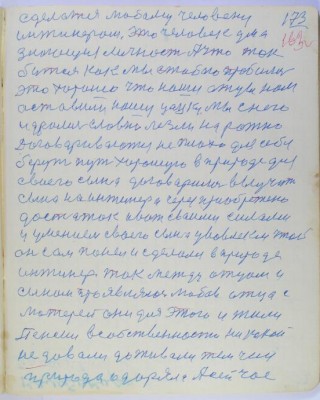 сделался любому человеку 173
инженером, это человек ума 163
знающия личность А что так
бытся как мы стабно пробыли
это хорошо что наши отцы нам
оставили нашу
и дрались словно лезли на рожно
договаривались не плохо для себя
берут путь хорошую в природе для
своего сына договорились выучить
сына на инженера серу приобретено
достаток а вот своими силами
и умением своего сына увлекли чтоб
он сам понял и сделали в природе
инженер так между отцом и
сыном проявилася любовь отца с
матерей они для этого и жили
Пенсии в собственность никакой
не довали доживали тем чем
природа одоряла А сейчас